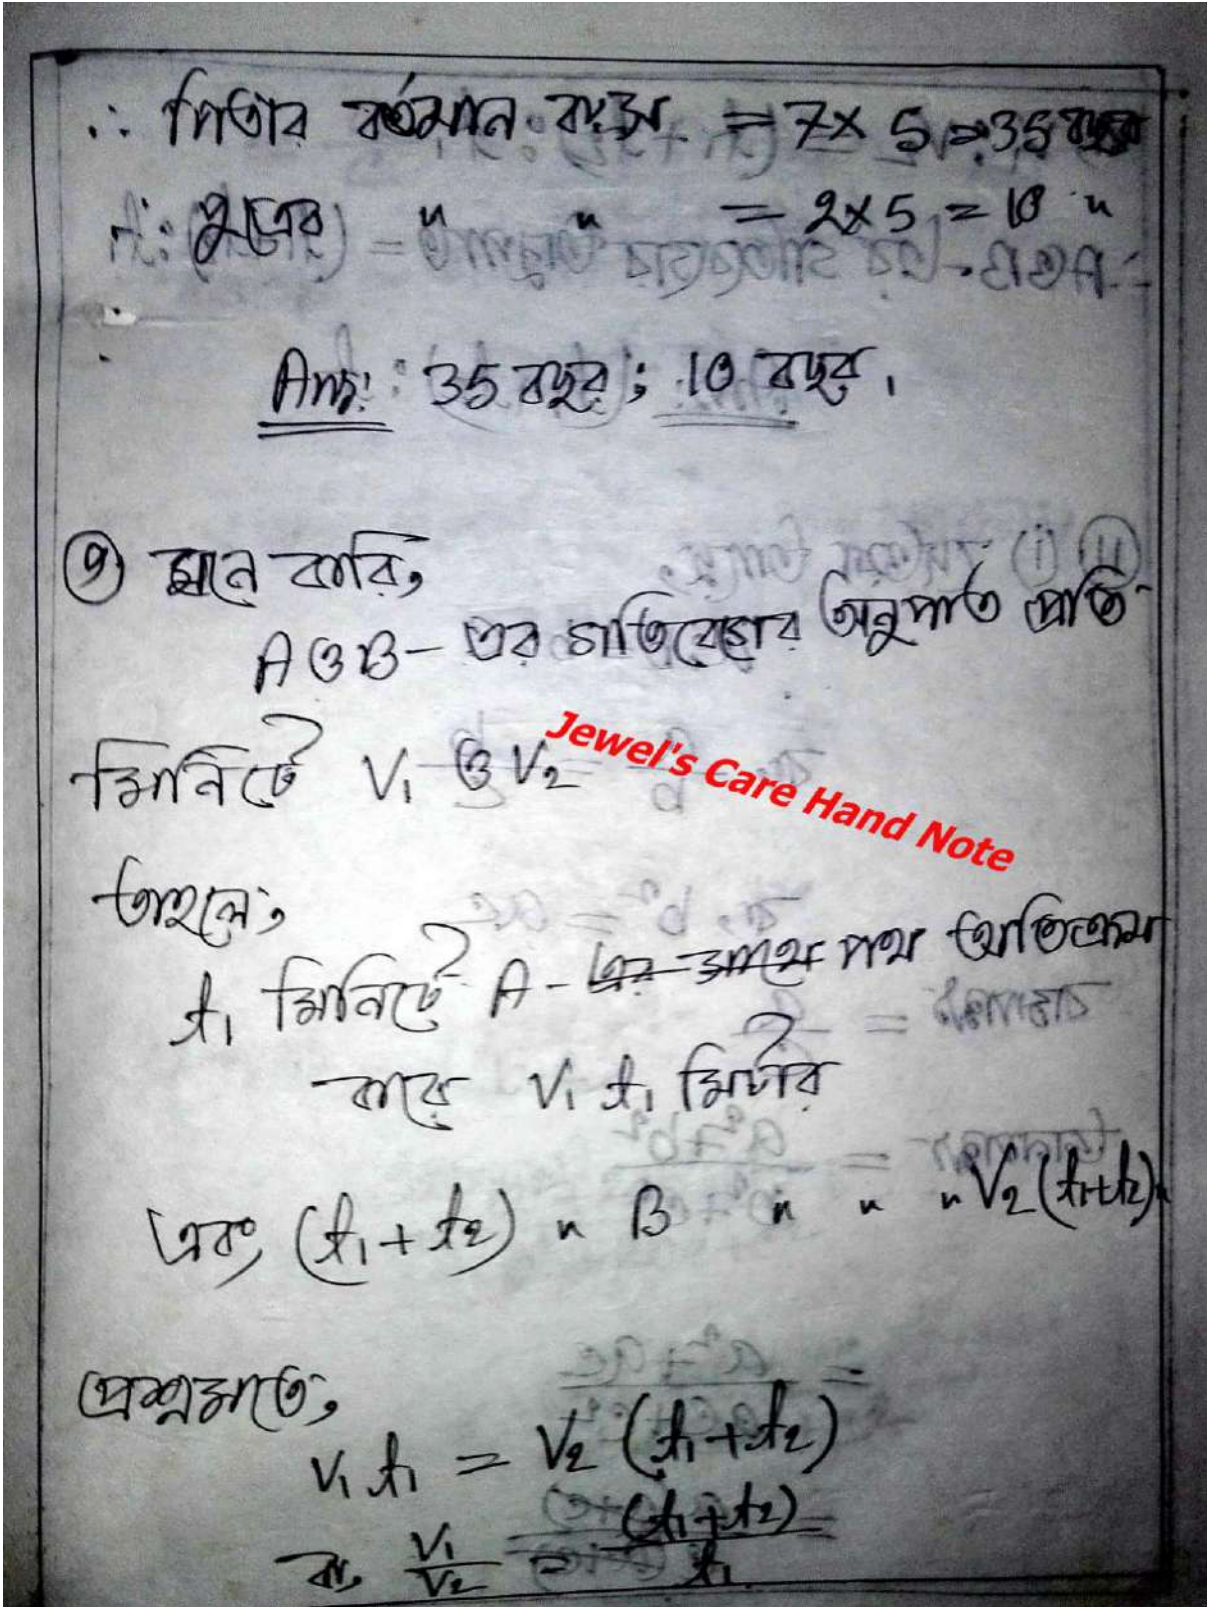 ∴ পিতার বর্তমান বয়স = 7 × 5 = 35 বছর
∴ পুত্রের " " = 2 × 5 = 10 "
Ans: 35 বছর; 10 বছর।
9) মনে করি,
A ও B – এর গতিবেগের অনুপাত প্রতি
মিনিটে V₁ ও V₂
Jewel's Care Hand Note
তাহলে,
t₁ মিনিটে A – এর সাথে পথ অতিক্রম
করে V₁ t₁ মিটার
এবং (t₁ + t₂) " B " " " V₂ (t₁+t₂) "
প্রশ্নমতে,
V₁ t₁ = V₂ (t₁ + t₂)
বা, V₁/V₂ = (t₁ + t₂)/t₁